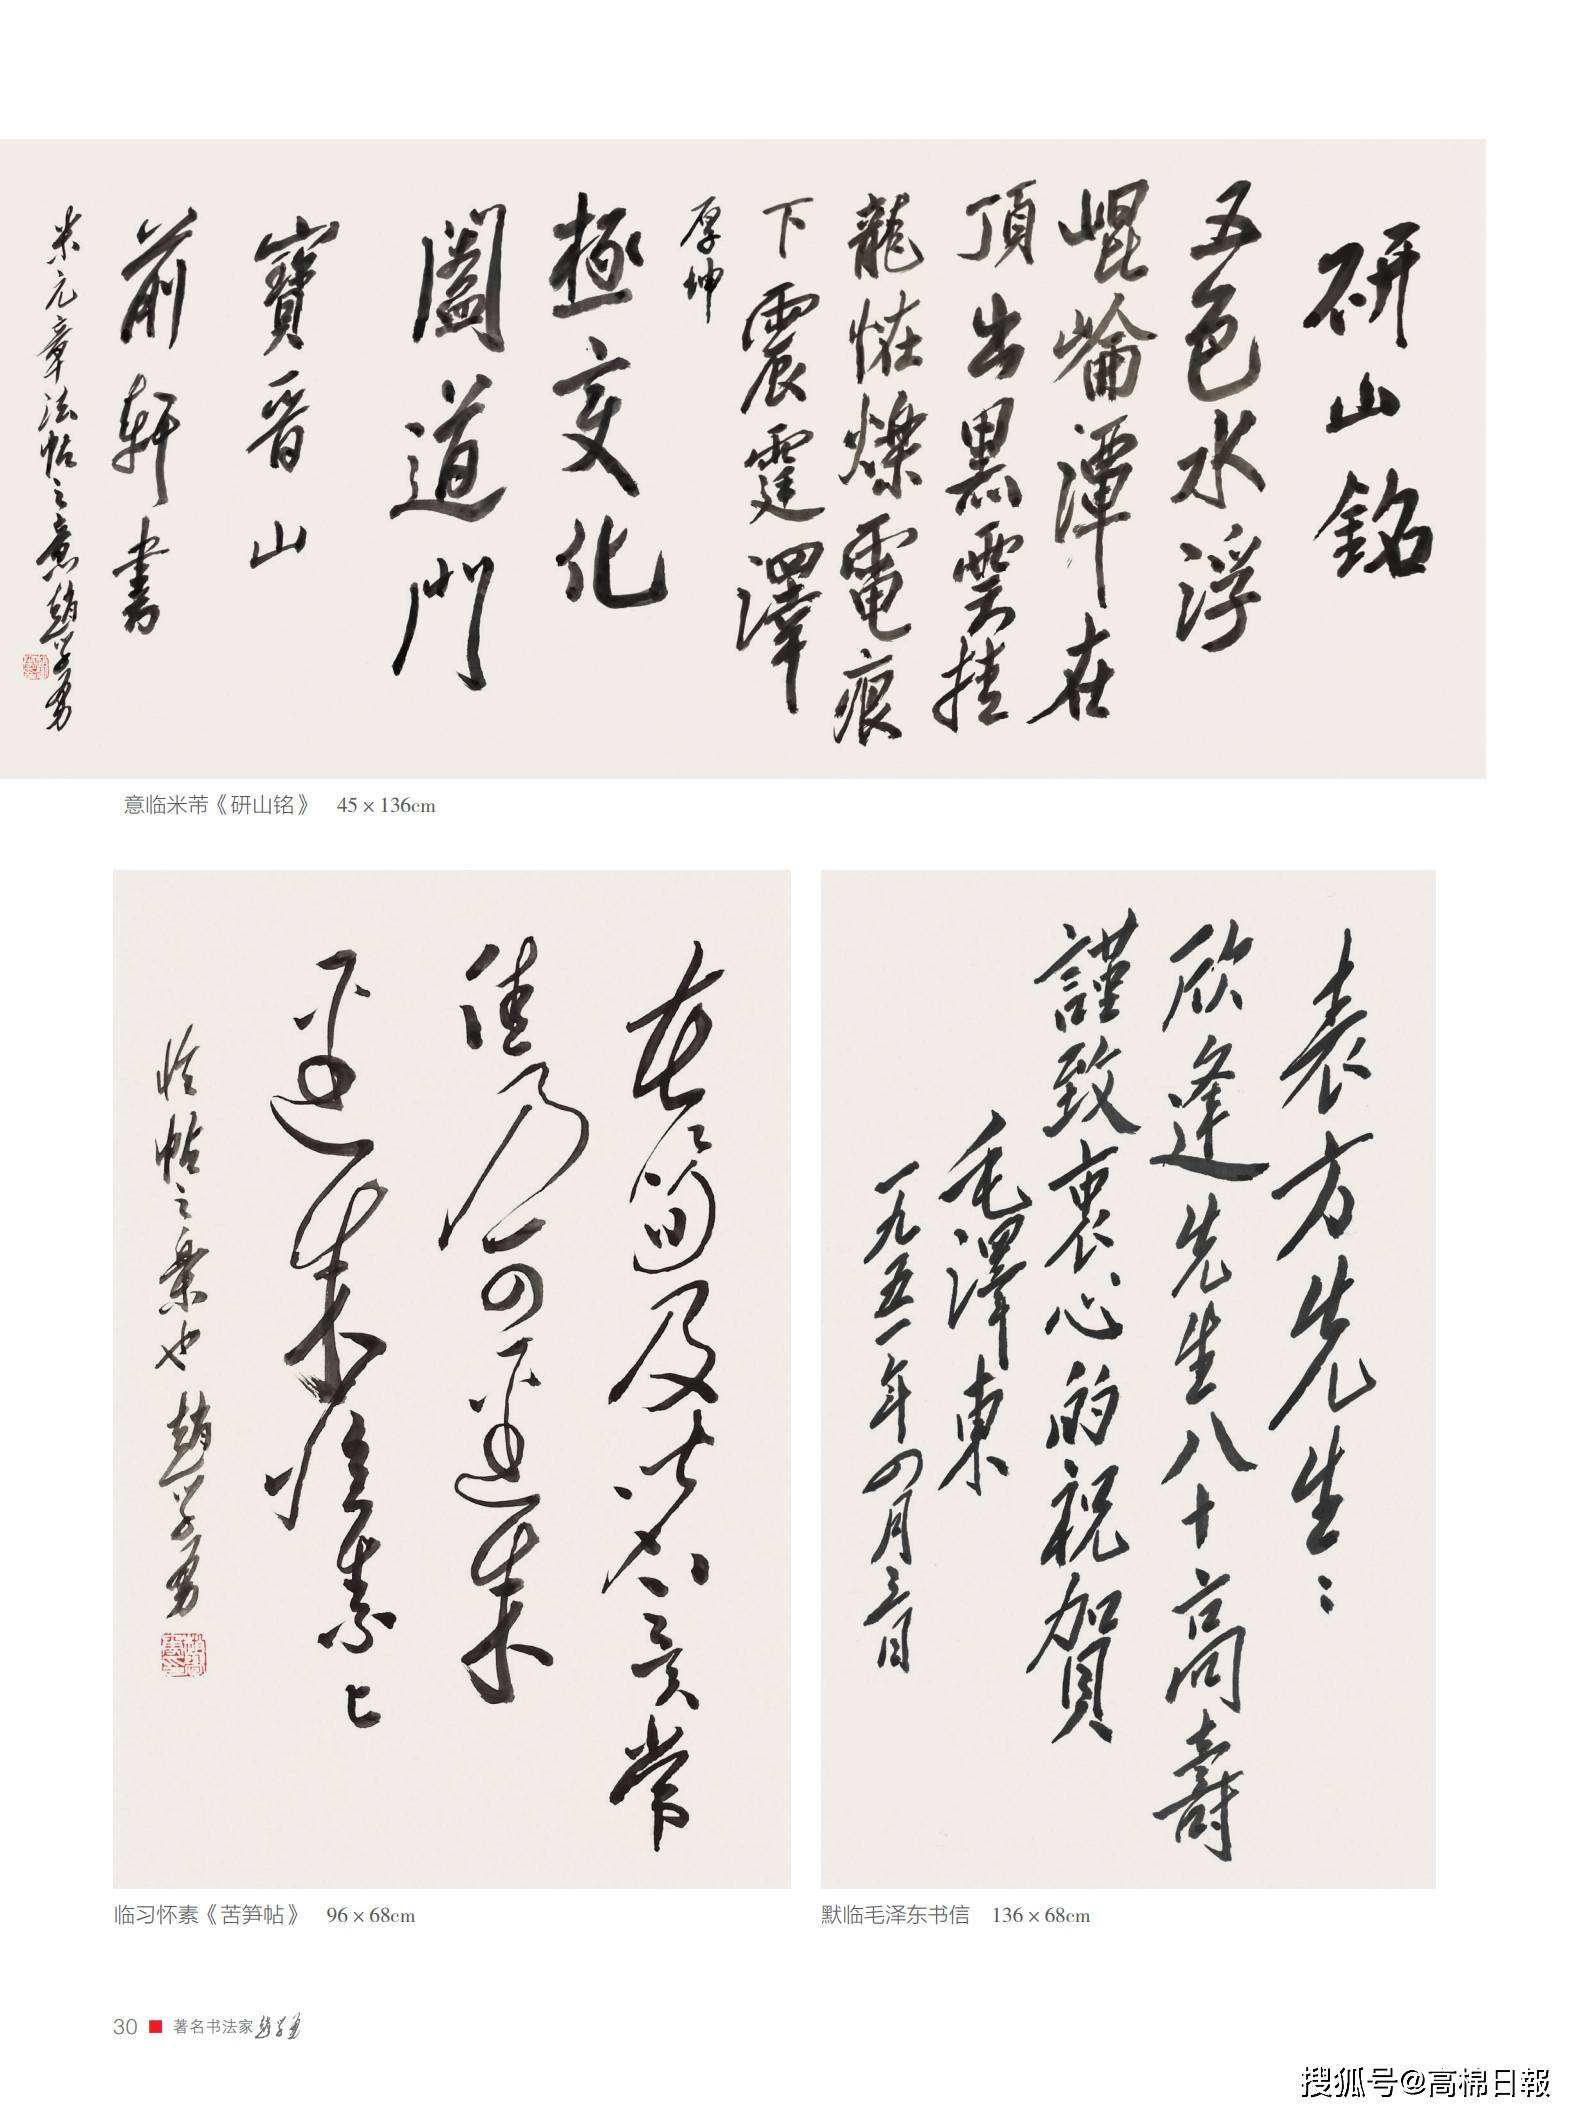 研山銘
五色水浮
崐崘潭在
頂出黑雲挂
龍怪爍電痕
下震霆澤
厚坤
極变化
闔道門
寶晋山
前軒書
米元章法帖之意趙学勇
意临米芾《研山铭》 45×136cm
苦笋及茗異常
佳乃可逕来
逕来懷素上
臨帖之業也趙学勇
临习怀素《苦笋帖》 96×68cm
表方先生：
欣逢先生八十高壽
謹致衷心的祝賀
毛澤東
一九五一年四月三日
默临毛泽东书信 136×68cm
30 著名书法家趙学勇
搜狐号@高棉日報